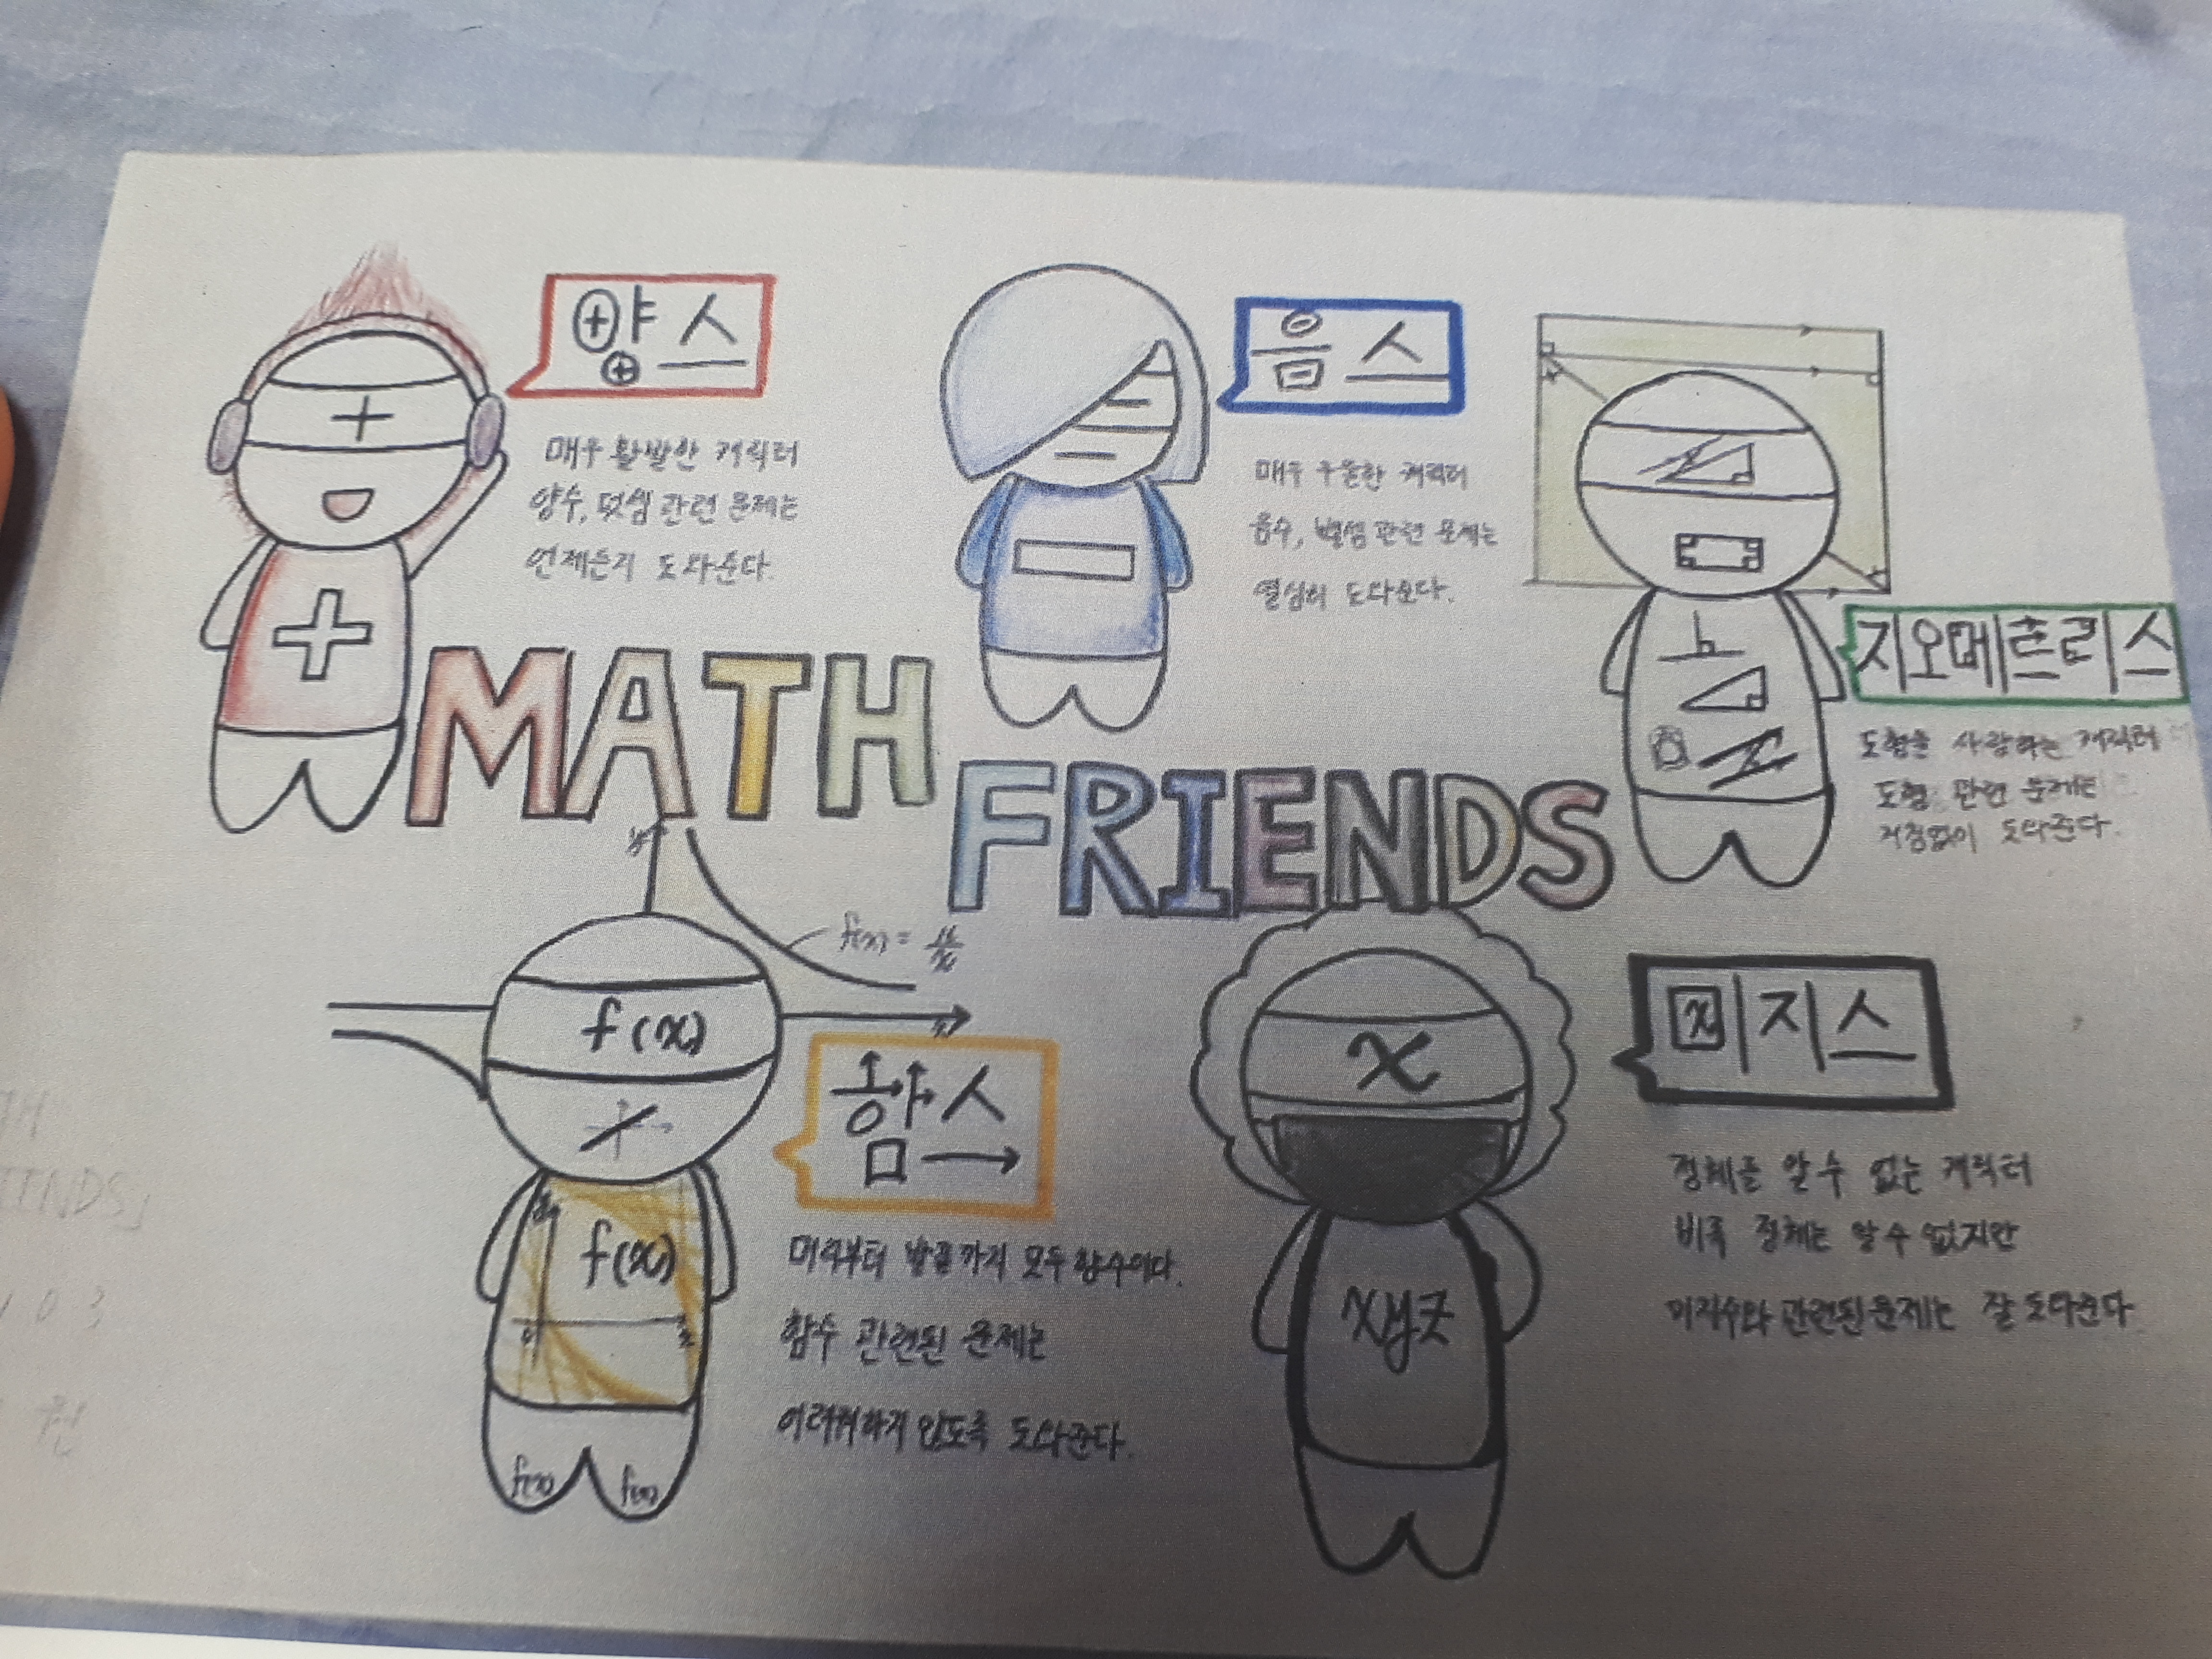 양스
+
매우 활발한 캐릭터
양수, 덧셈 관련 문제는
언제든지 도와준다.
음스
매우 우울한 캐릭터
음수, 뺄셈 관련 문제는
열심히 도와준다.
지오메트리스
도형을 사랑하는 캐릭터
도형 관련 문제는
거침없이 도와준다.
MATH
FRIENDS
f(x) =
f(x)
함스
f(x)
머리부터 발끝까지 모두 함수이다.
함수 관련된 문제는
어려워하지 않도록 도와준다.
f(x) f(x)
x
미지스
xyz
정체를 알 수 없는 캐릭터
비록 정체는 알 수 없지만
미지수와 관련된 문제는 잘 도와준다